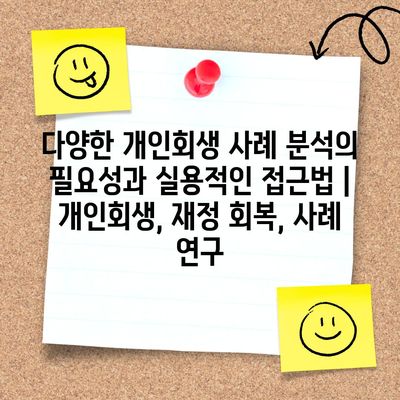 다양한 개인회생 사례 분석의
필요성과 실용적인 접근법 |
개인회생, 재정 회복, 사례
연구